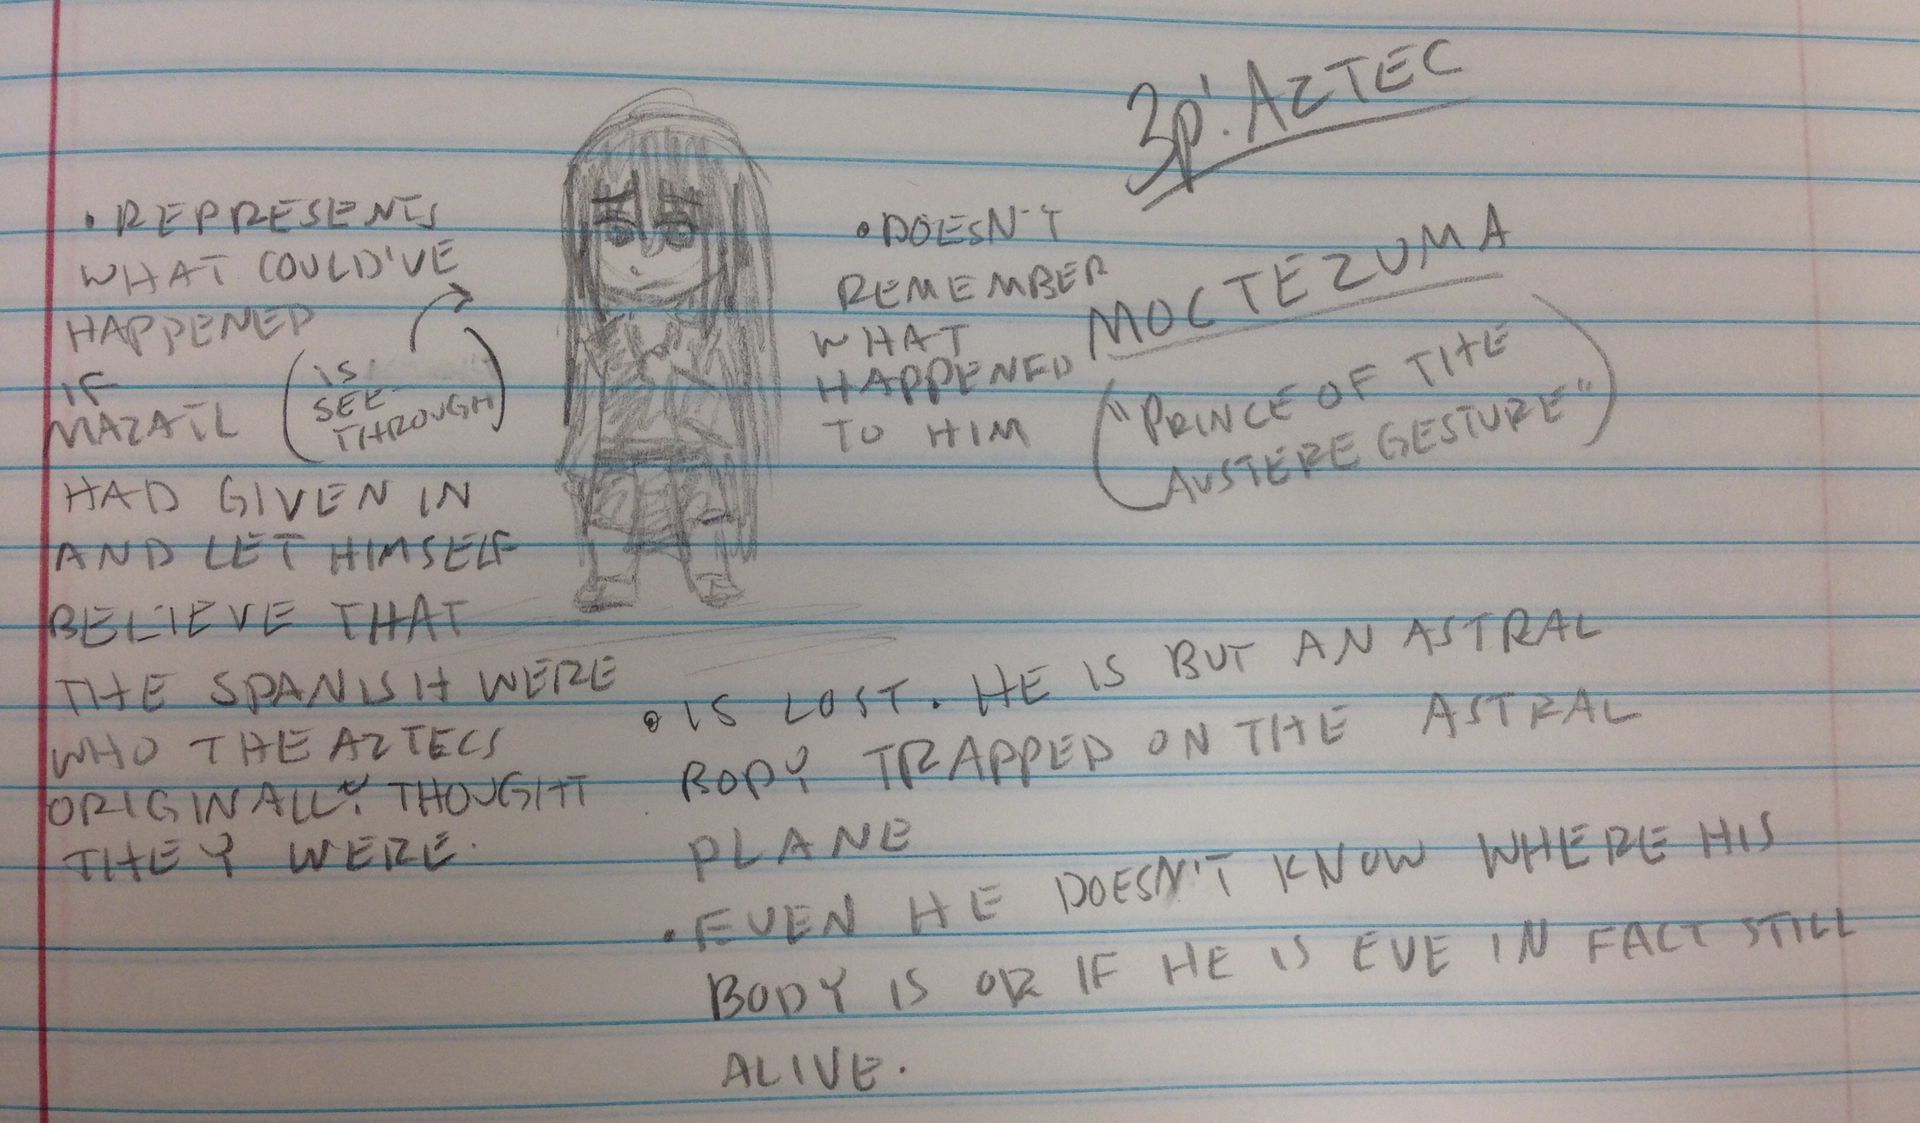 3p! AZTEC
MOCTEZUMA
("PRINCE OF THE
AUSTERE GESTURE")
• REPRESENTS
WHAT COULD'VE
HAPPENED
IF
MAZATL
HAD GIVEN IN
AND LET HIMSELF
BELIEVE THAT
THE SPANISH WERE
WHO THE AZTECS
ORIGINALLY THOUGHT
THEY WERE.
(IS
SEE-
THROUGH)
• DOESN'T
REMEMBER
WHAT
HAPPENED
TO HIM
• IS LOST. HE IS BUT AN ASTRAL
BODY TRAPPED ON THE ASTRAL
PLANE
• EVEN HE DOESN'T KNOW WHERE HIS
BODY IS OR IF HE IS EVE IN FACT STILL
ALIVE.